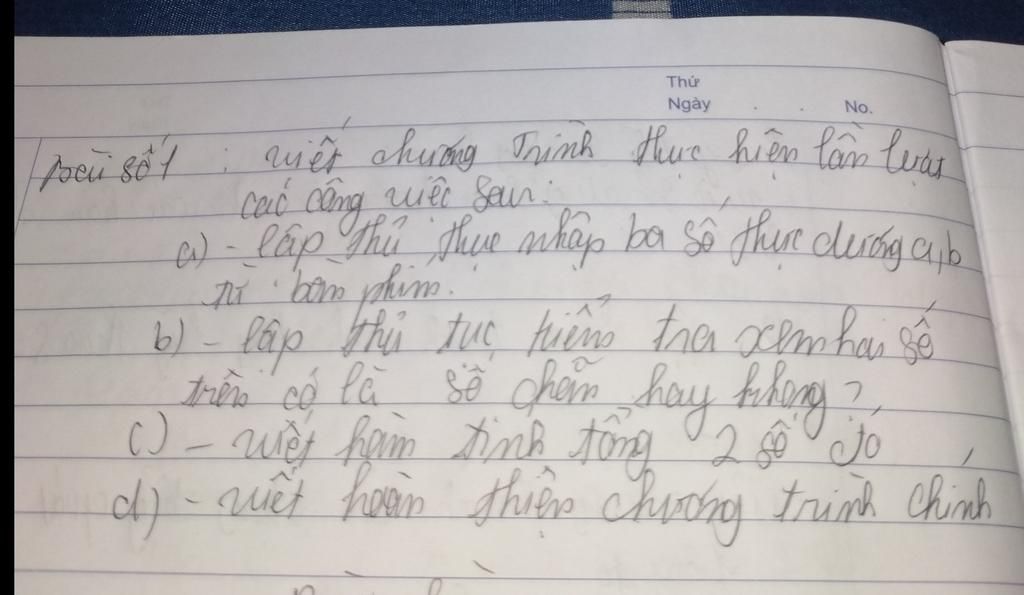 Thứ
Ngày . . No.
bài số 1 : viết chương trình thực hiện lần lượt
các công việc sau:
a) - lập thủ thục nhập ba số thực dương a,b
từ bàn phím.
b) - lập thủ tục kiểm tra xem hai số
trên có là số chẵn hay không?
c) - viết hàm tính tổng 2 số đó
d) - viết hoàn thiện chương trình chính